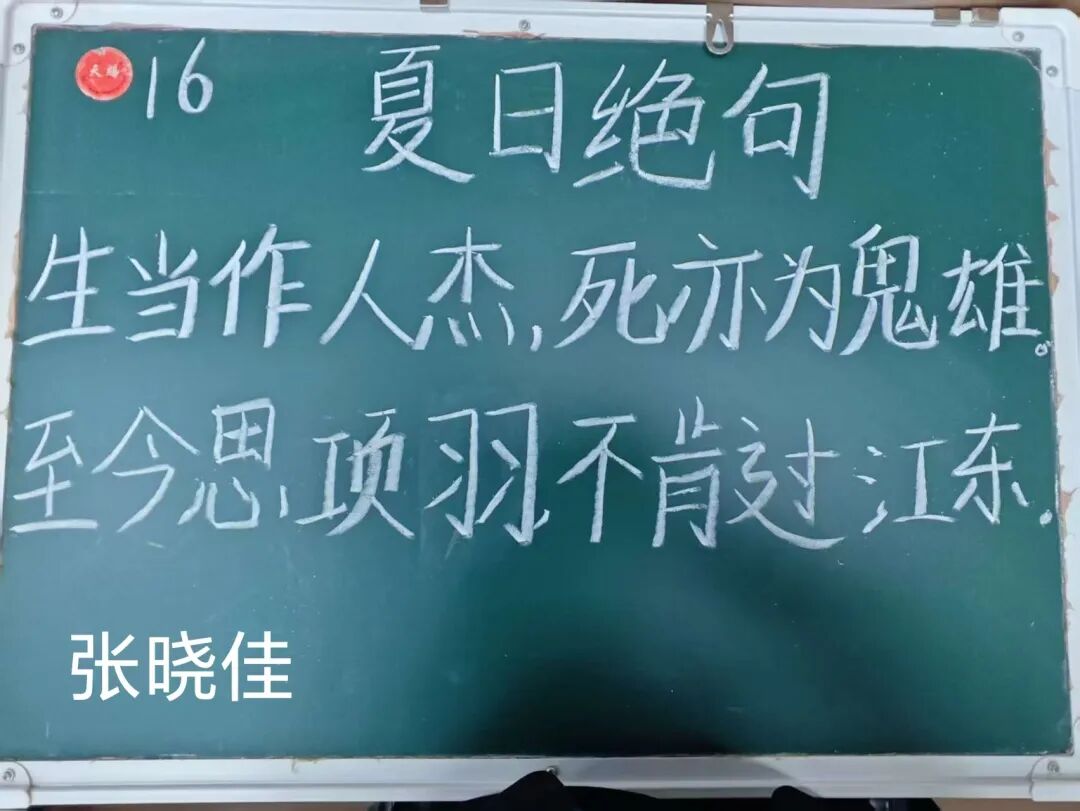 天赐
16
夏日绝句
生当作人杰,死亦为鬼雄。
至今思项羽,不肯过江东.
张晓佳